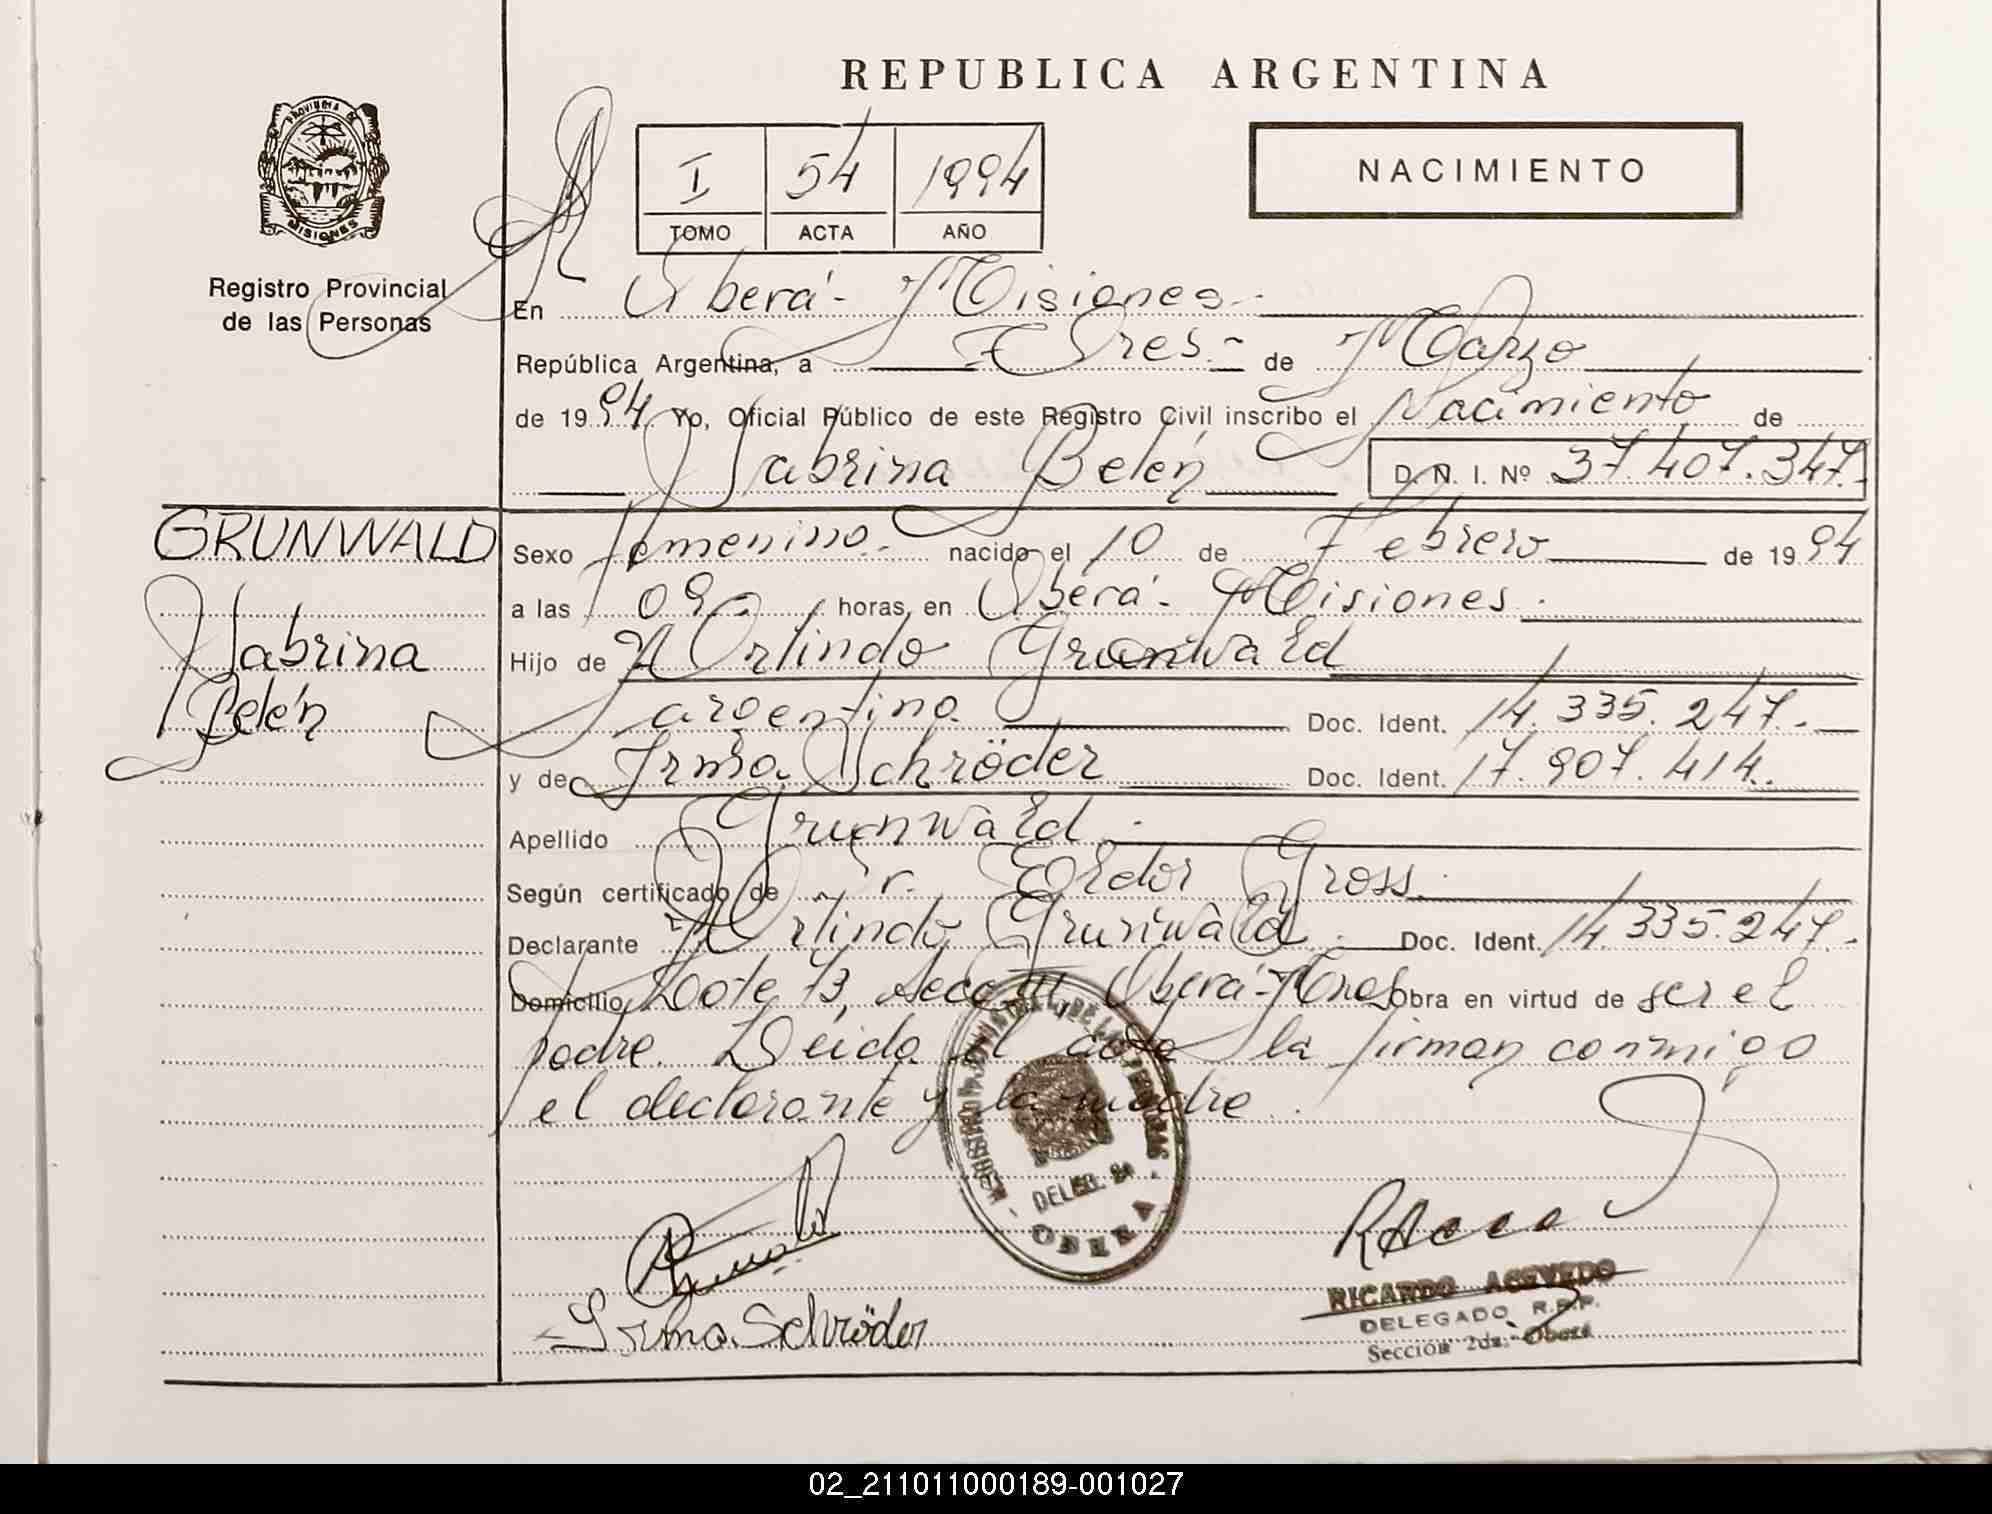 REPUBLICA ARGENTINA
PROVINCIA DE
MISIONES
Registro Provincial
de las Personas
I 54 1994
TOMO ACTA AÑO
NACIMIENTO
En Oberá - Misiones.-
República Argentina, a Tres.- de Marzo
de 1994 Yo, Oficial Público de este Registro Civil inscribo el Nacimiento de
Sabrina Belén D. N. I. Nº 37.407.347.-
GRUNWALD
Sabrina
Belén
Sexo femenino.- nacido el 10 de Febrero de 1994
a las 09 horas, en Oberá - Misiones.
Hijo de Arlindo Grunwald
argentino Doc. Ident. 14.335.247.-
y de Irma Schröder Doc. Ident. 17.907.414.
Apellido Grunwald.-
Según certificado de Dr. Gross.
Declarante Arlindo Grunwald. Doc. Ident. 14.335.247.-
Domicilio Lote 73, Secc. Oberá - Mnes Obra en virtud de ser el
padre. Leida el acta la firman conmigo
el declarante y la madre.
REGISTRO PROVINCIAL DE LAS PERSONAS
DELEG. 2a
OBERA
Irma Schröder
RICARDO ACEVEDO
DELEGADO R.P.P.
Sección 2da. - Oberá
02_211011000189-001027